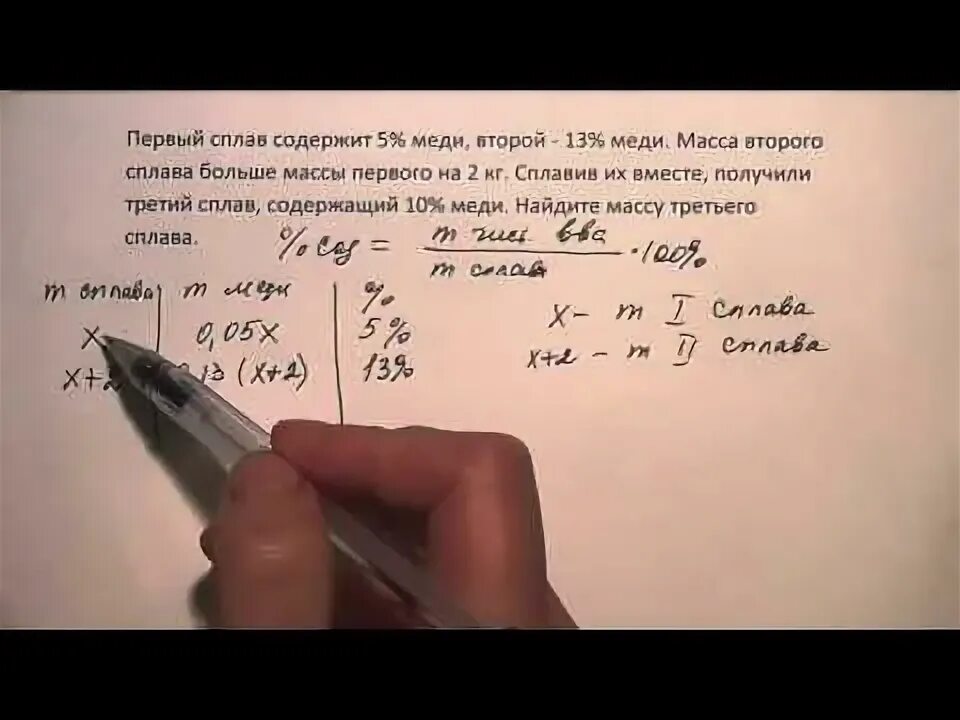 Первый сплав содержит 5% меди, второй - 13% меди. Масса второго
сплава больше массы первого на 2 кг. Сплавив их вместе, получили
третий сплав, содержащий 10% меди. Найдите массу третьего
сплава.
% сод = m чист в-ва / m сплава · 100%
m сплава m меди %
x 0,05x 5%
x+2 13 (x+2) 13%
x - m I сплава
x+2 - m II сплава